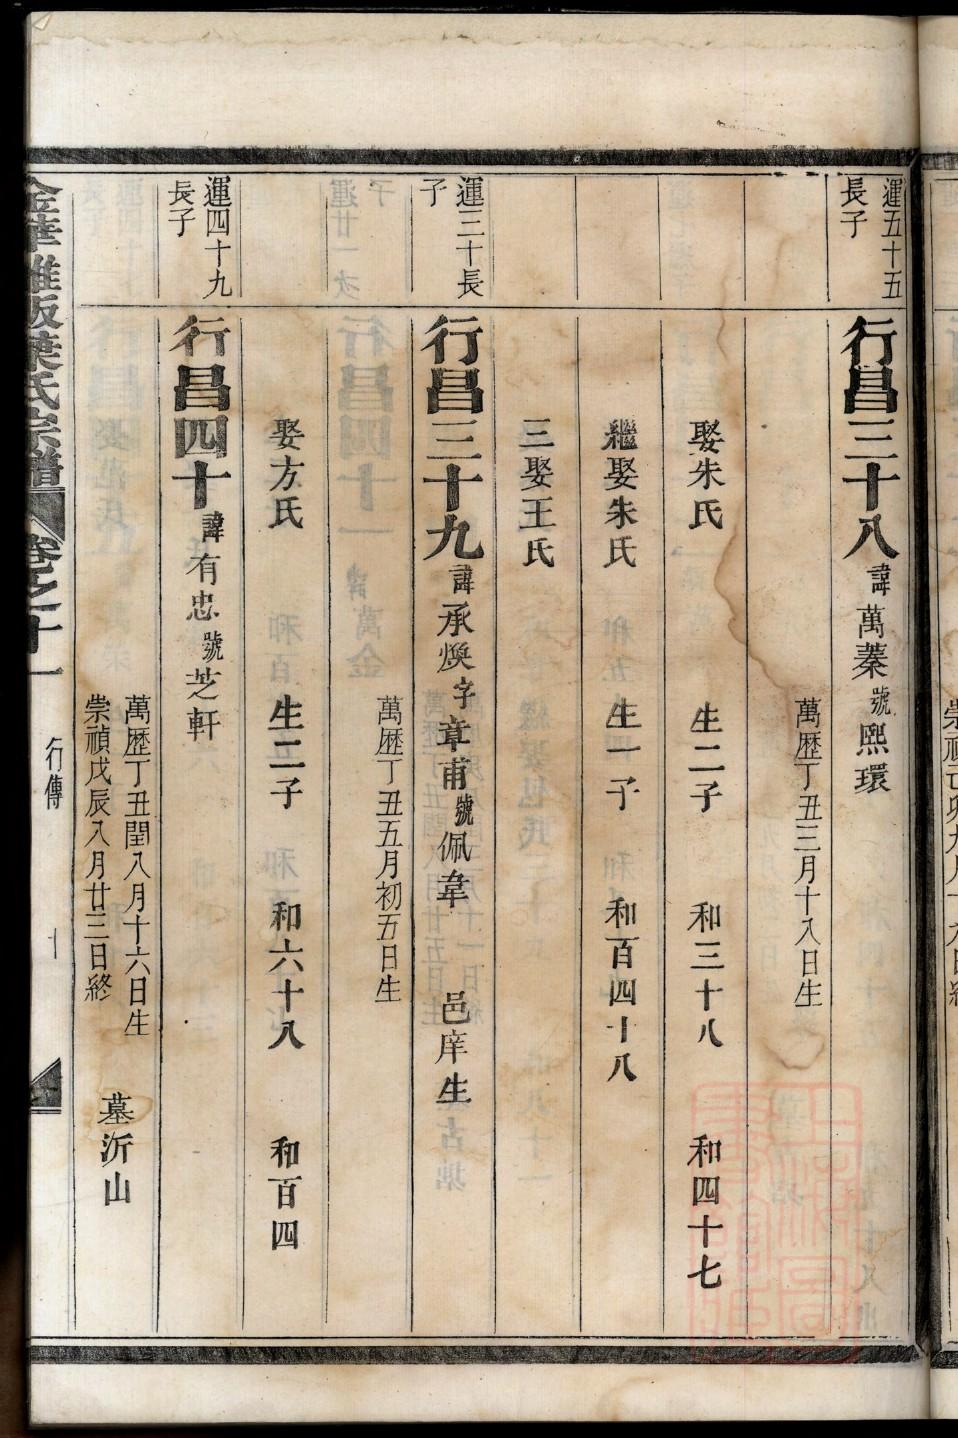 運五十五
長子
行昌三十八諱萬蓁號熙環
萬歷丁丑三月十八日生
娶朱氏 生二子 和三十八 和四十七
繼娶朱氏 生一子 和百四十八
三娶王氏
運三十長
子
行昌三十九諱承煥字章甫號佩韋 邑庠生
萬歷丁丑五月初五日生
娶方氏 生二子 和六十八 和百四
運四十九
長子
行昌四十諱有忠號芝軒
萬歷丁丑閏八月十六日生
崇禎戊辰八月廿三日終
墓沂山
葉氏宗譜 卷之十一 行傳 十